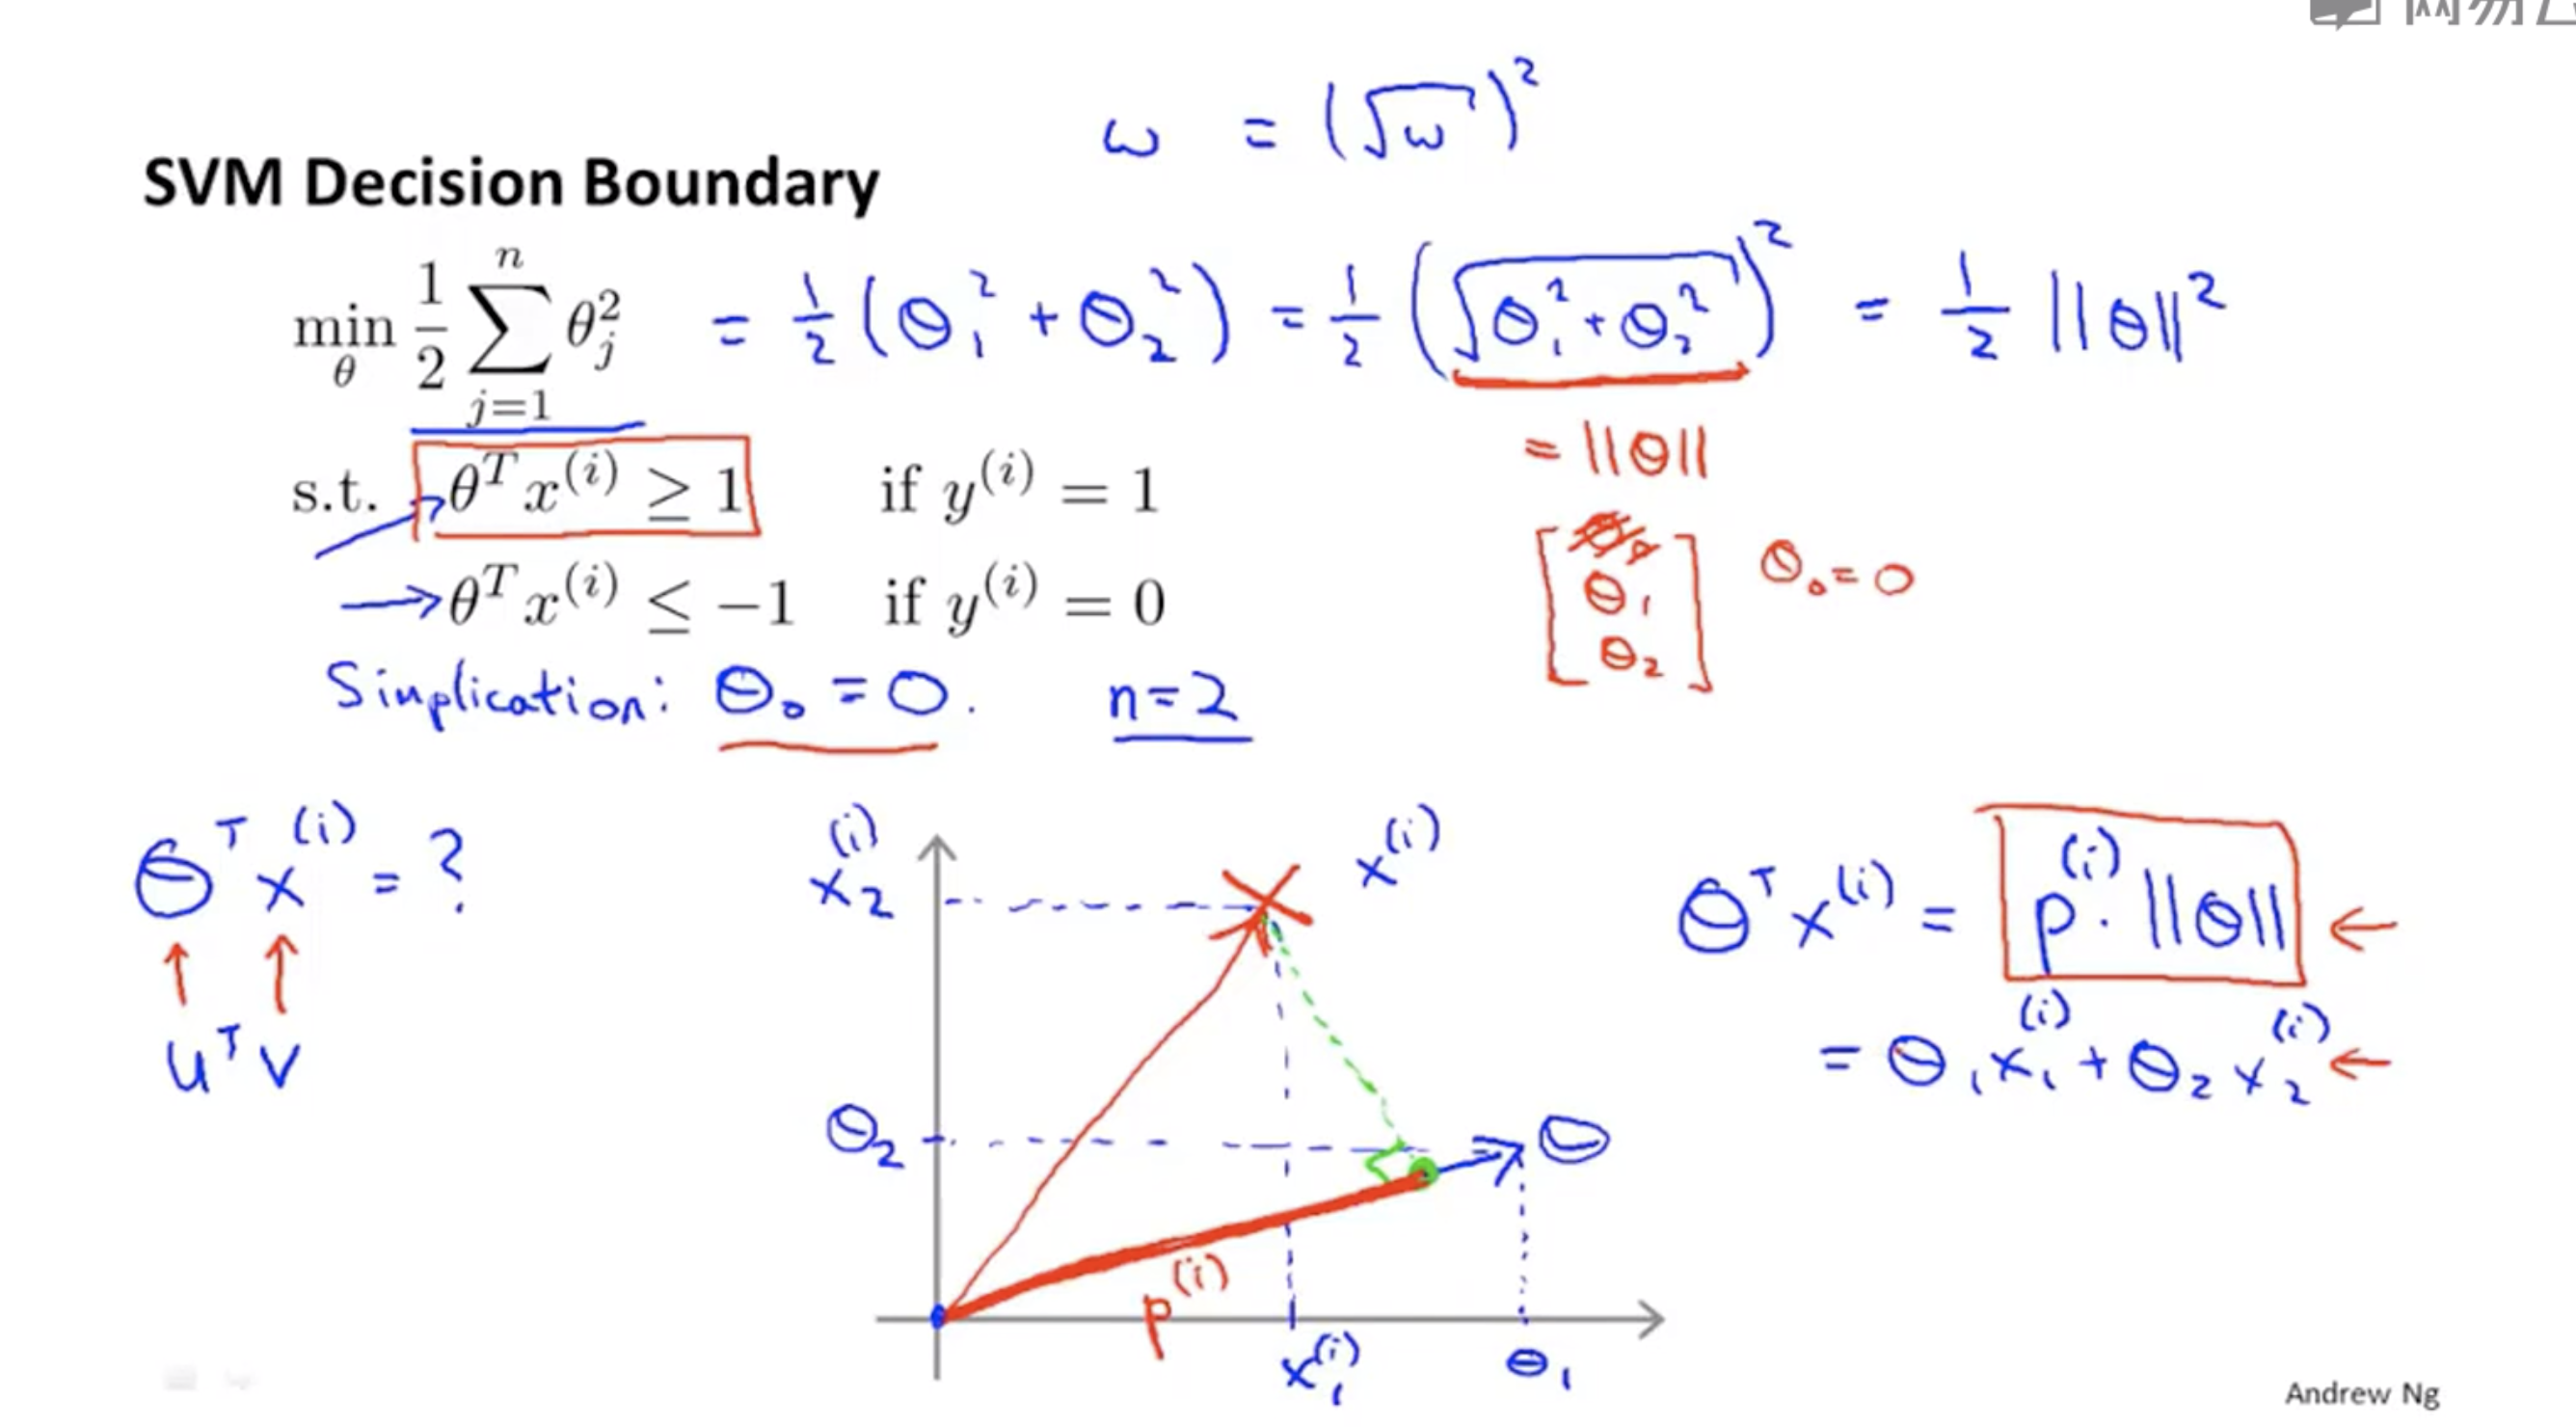 网易
ω = (√ω)²
SVM Decision Boundary
min_θ 1/2 ∑_{j=1}^{n} θ_j² = 1/2 (θ₁² + θ₂²) = 1/2 (√(θ₁² + θ₂²))² = 1/2 ||θ||²
= ||θ||
s.t. θᵀx⁽ⁱ⁾ ≥ 1 if y⁽ⁱ⁾ = 1
θᵀx⁽ⁱ⁾ ≤ −1 if y⁽ⁱ⁾ = 0
[θ₀ θ₁ θ₂] θ₀ = 0
Simplication: θ₀ = 0. n = 2
θᵀx⁽ⁱ⁾ = ?
uᵀv
x₂⁽ⁱ⁾
x⁽ⁱ⁾
θ₂
θ
p⁽ⁱ⁾
x₁⁽ⁱ⁾
θ₁
θᵀx⁽ⁱ⁾ = p⁽ⁱ⁾ · ||θ|| ←
= θ₁x₁⁽ⁱ⁾ + θ₂x₂⁽ⁱ⁾ ←
Andrew Ng